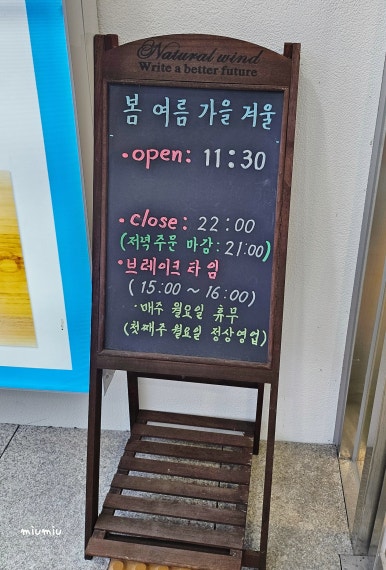 Natural wind
Write a better future
봄 여름 가을 겨울
•open: 11:30
•close: 22:00
(저녁 주문 마감: 21:00)
•브레이크 타임
(15:00 ~ 16:00)
·매주 월요일 휴무
(첫째주 월요일 정상영업)
miumiu